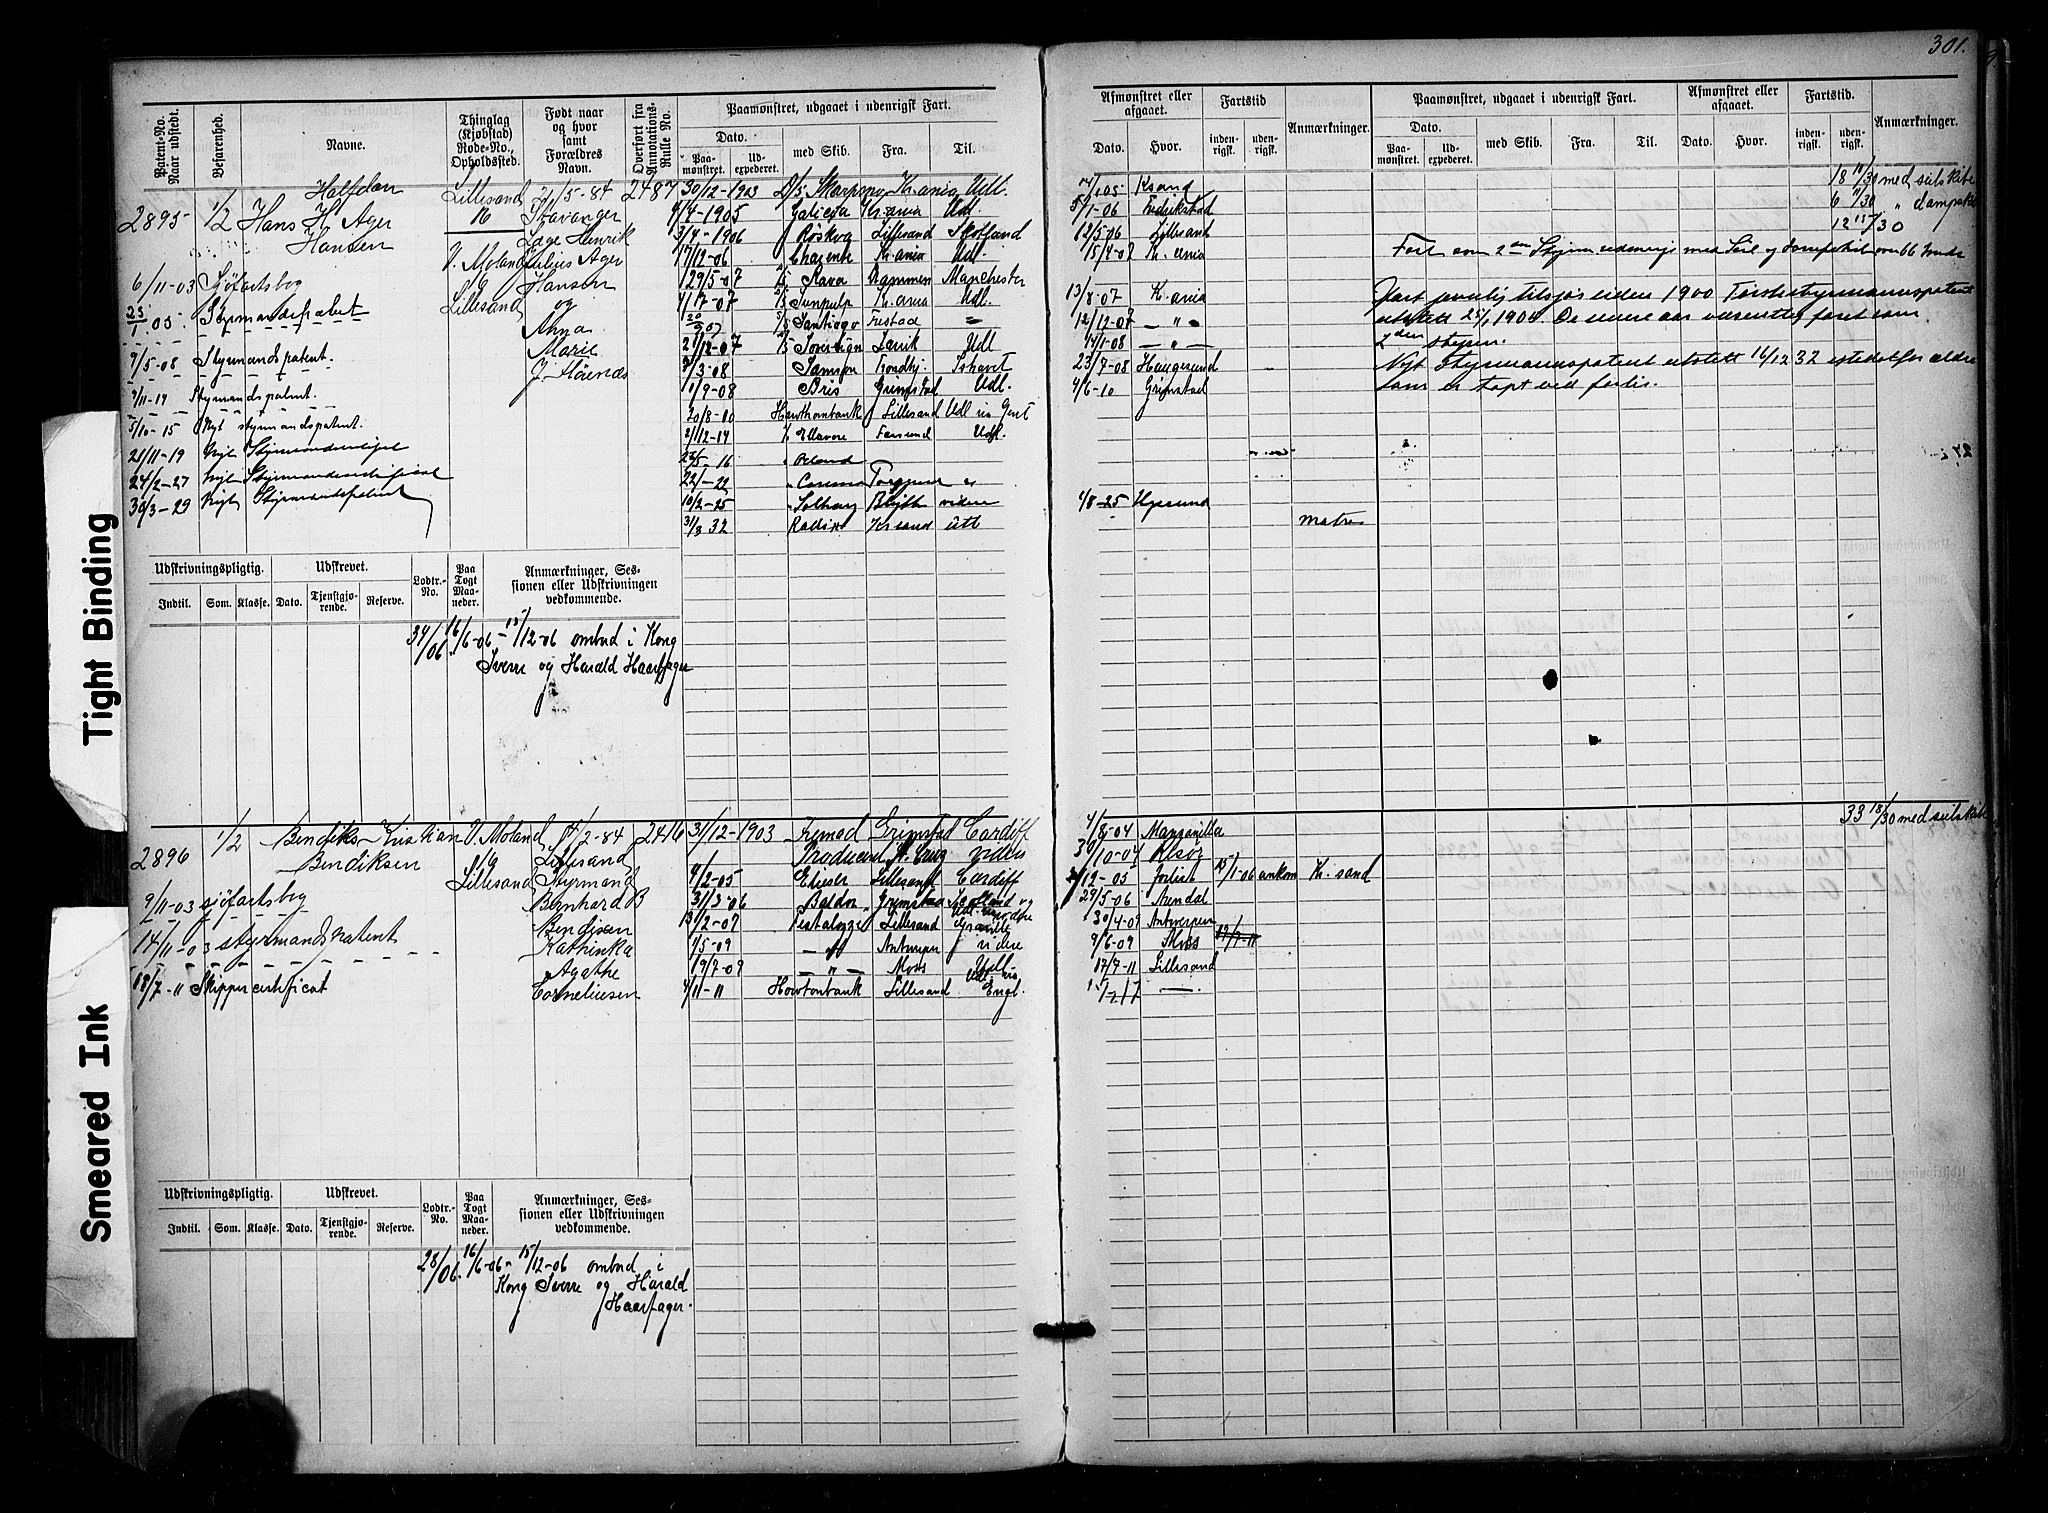 301.
Tight Binding
Smeared Ink
Patent-No. Naar udstedt.
Befarenhed.
Navne.
Thinglag (Kjøbstad) Rode-No., Opholdssted.
Født naar og hvor samt Forældres Navn.
Overført fra Annotations-Rulle No.
Paamønstret, udgaaet i udenrigsk Fart.
Dato.
Paamønstret.
Udexpederet.
med Skib.
Fra.
Til.
Afmønstret eller afgaaet.
Dato.
Hvor.
Fartstid
indenrigsk.
udenrigsk.
Anmærkninger.
Paamønstret, udgaaet i udenrigsk Fart.
Dato.
Paamønstret.
Udexpederet.
med Skib.
Fra.
Til.
Afmønstret eller afgaaet.
Dato.
Hvor.
Fartstid.
indenrigsk.
udenrigsk.
Anmærkninger.
2895
1/2
Halfdan
Hans H. Ager
Hansen
Lillesand
16
V. Moland
Lillesand
21/5-84
Stavanger
Lage Henrik
Julius Ager
Hansen
og
Anna
Marie
J. Høienæs
2487
6/11-03 Sjøfartsbog
23/1 05- Styrmandspatent
9/5-08 Styrmandspatent.
9/11-14 Styrmandspatent.
5/10-15 Nyt styrmandspatent.
21/11-19 Nyt
24/2-27 Nyt
30/3-29 Nyt Styrmandspatent
30/12-1903 D/S Skarpsno Kr.ania Udl.
4/4-1905 Galicia Kr.ania Udl.
3/4-1906 Røskva Lillesand Skotland
17/12-06 Charente Kr.ania Udl.
29/5-07 Slava Drammen Manchester
4/17-07 Sunpulp K.ania Udl.
20/9 07 Santiago Frstad
21/12-07 Sovereign Larvik Udl
3/3-08 Samson Trondhj. Ishavet
1/9-08 Bris Grimstad Udl.
20/8-10 Howthornbank Lillesand Udl via Gent
21/12-14 Ellavore Farsund Udl.
23/5-16
22/1-22
10/2-25 Solhaug Blyth videre
31/8 32 Radix Kr sand utl
7/1 05 Ksand
5/1-06 Fredrikstad
12/5-06 Lillesand
15/4-07 K. ania
13/8-07 K. ania
12/12-07 — " —
14/1-08 — " —
23/7-08 Haugesund
4/6-10 Grimstad
1/8-25
matros
18 11/30 med seilskibe
6 4/30 " dampskib
12 15/30
Fart som 2en Styrm. udenrigs med Seil og dampskib over 66 mnd
Fart paalig tilsjøs siden 1900 Førstestyrmannspatent
utstett 25/1 1904. De senere aar væsentlig faret som
2den styrm.
Nytt Styrmannspatent utstett 16/12 32 istedetfor ældre
som er tapt ved forlis.
Udskrivningspligtig.
Indtil.
Som.
Klasse.
Udskrevet.
Dato.
Tjenstgjørende.
Reserve.
Lodtr.-No.
Paa Togt Maaneder.
Anmærkninger, Sessionen eller Udskrivningen vedkommende.
34/06 16/6-06 - 15/12-06 ombud i Kong
Sverre og Harald Haarfager
2896
1/2
Bendiks Kristian
Bendiksen
V. Moland
Lillesand
17/2-84
Lillesand
Styrmand
Bernhard B
Bendixen
Kathinka
Agathe
Corneliusen
2416
9/11-03 sjøfartsbog
14/11-03 styrmandspatent
18/7-11 Skippercertificat
31/12-1903 Grimstad Cardiff
Producent St. Cruz videre
4/2-05 Elieser Lillesand Cardiff
31/3-06 Baldor Grimstad
13/2-07 Pestalozzi Lillesand
1/5-09 — " — Antwerpen videre
19/7-09 — " — Moss Udl.
4/11-11 Howtonbank Lillesand Udl. via Engl.
4/8-04 Manzanilla
30/10-04
/12-05 15/1-06 ankom Kr. sand
29/5-06 Arendal
30/4-09 Antwerpen
9/6-09 Moss
17/9-11 Lillesand
33 18/30 med seilskibe
Udskrivningspligtig.
Indtil.
Som.
Klasse.
Udskrevet.
Dato.
Tjenstgjørende.
Reserve.
Lodtr.-No.
Paa Togt Maaneder.
Anmærkninger, Sessionen eller Udskrivningen vedkommende.
28/06. 16/6-06 - 15/12-06 ombud i
Kong Sverre og Harald
Haarfager.